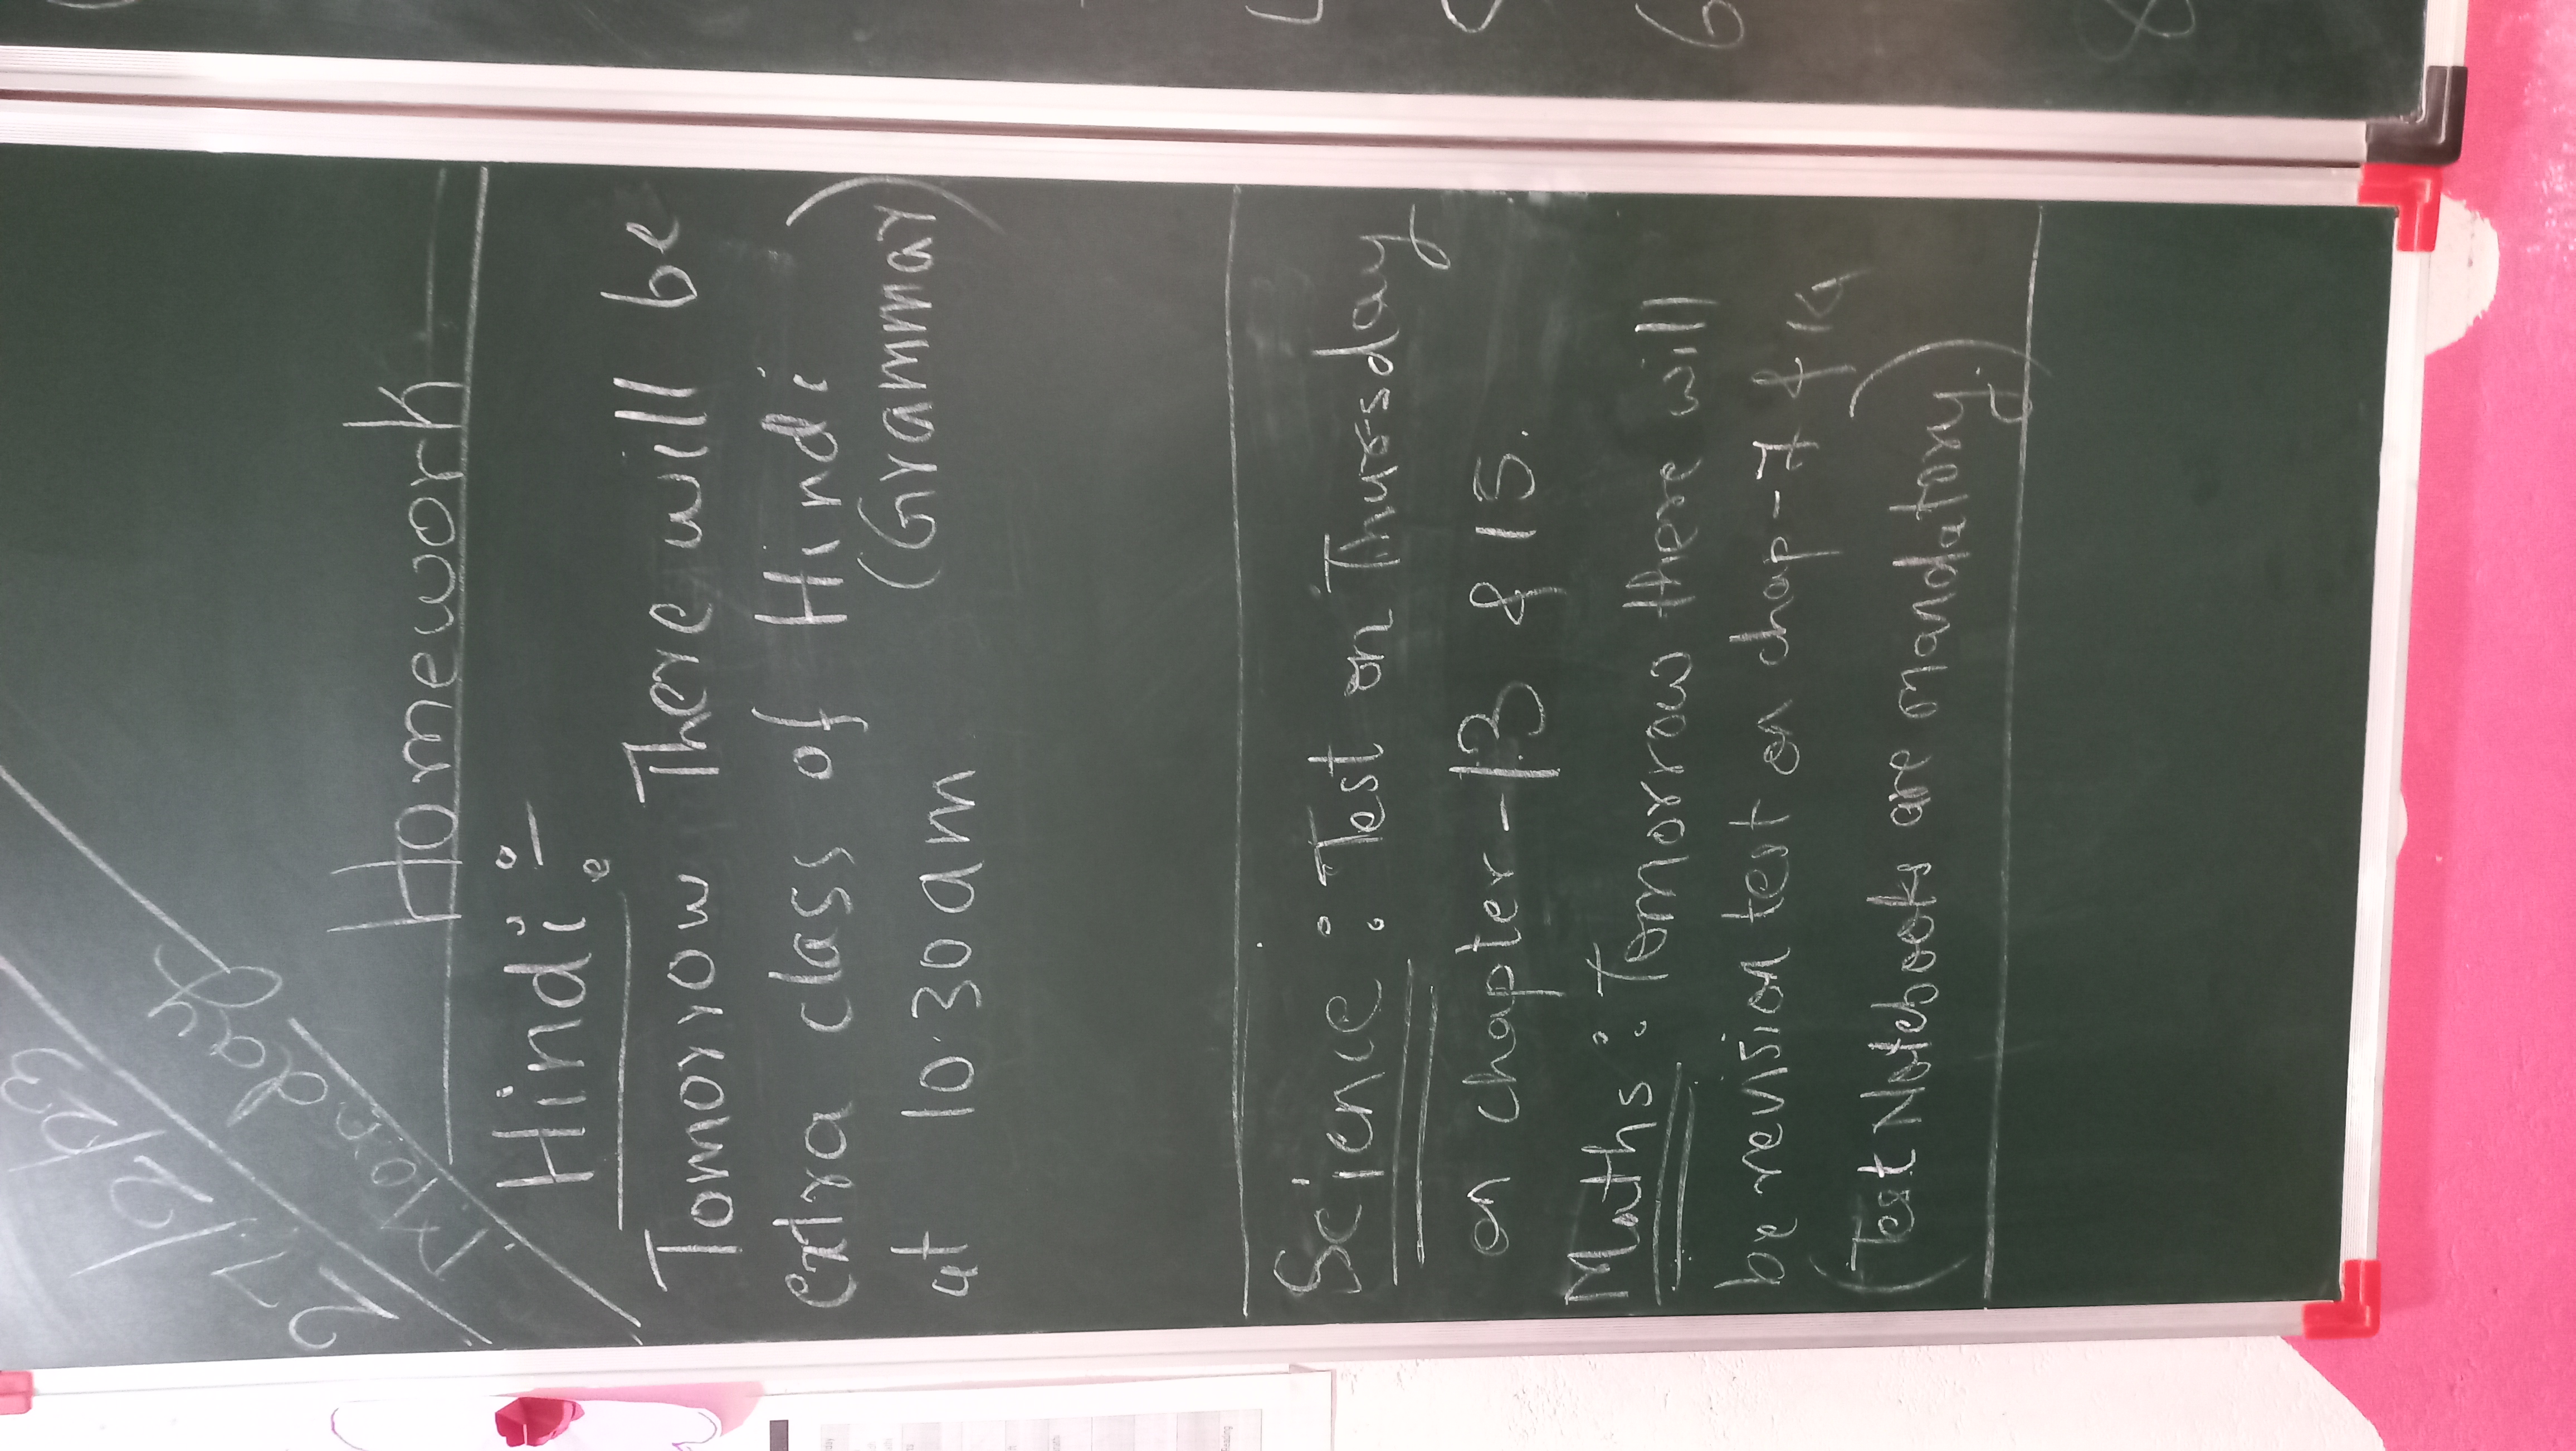 27/2/23
Monday
Homework
Hindi:-
Tomorrow There will be
extra class of Hindi
at 10:30am (Grammar)
Science: Test on Thursday
on chapter-13 & 15.
Maths: Tomorrow there will
be revision test on chap-7 & 14
(Test Notebooks are mandatory)
6
8